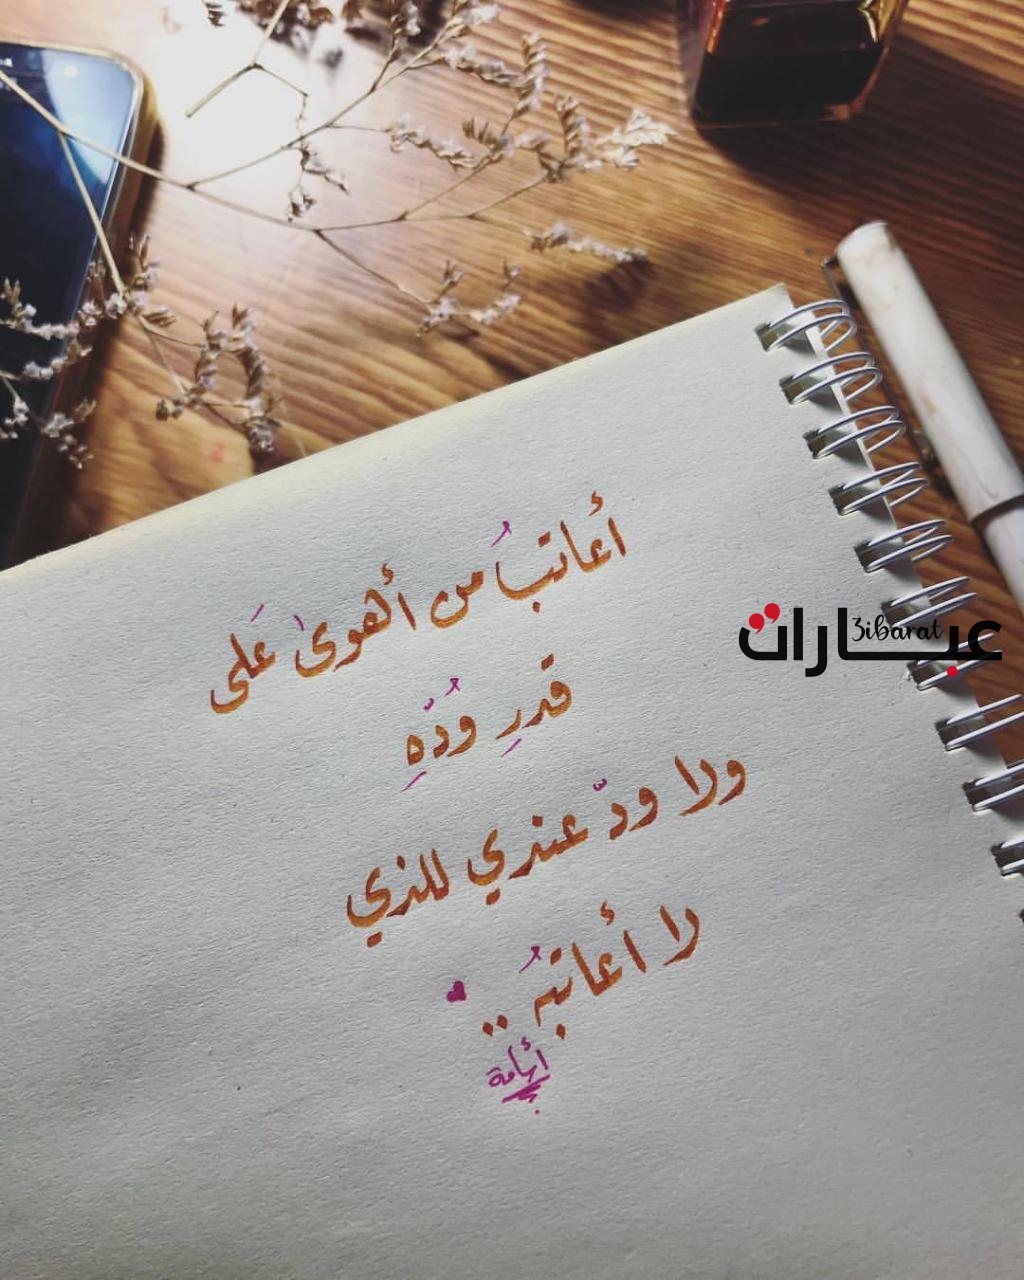 أعاتبُ من أهوىٰ عَلى
قدرِ وُدّهِ
ولا ودّ عندي للذي
لا أعاتبهُ ..
عبارات
3ibarat